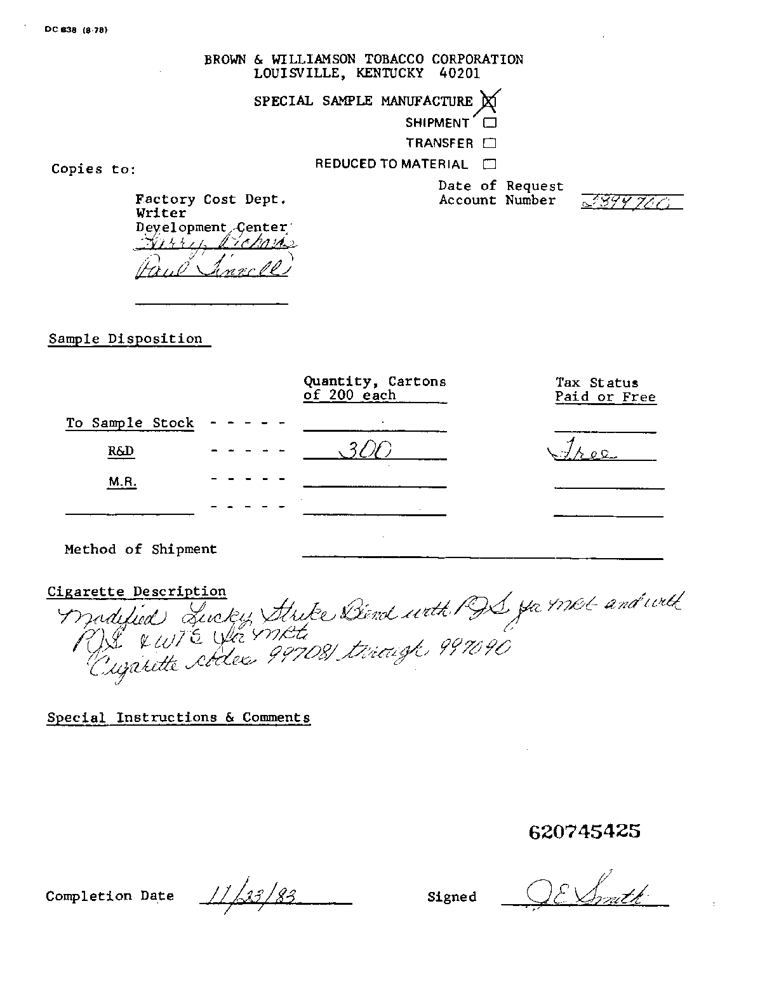 DC 838 (8-78)
BROWN & WILLIAMSON TOBACCO CORPORATION
LOUISVILLE, KENTUCKY 40201
SPECIAL SAMPLE MANUFACTURE
SHIPMENT
TRANSFER
REDUCED TO MATERIAL
Copies to:
Date of Request
Account Number
Factory Cost Dept.
Writer
Development Center
Paul
Sample Disposition
Quantity, Cartons of 200 each
Tax Status Paid or Free
To Sample Stock - - - - -
R&D - - - - - 300 Free
M.R. - - - - -
- - - - -
Method of Shipment
Cigarette Description
Modified Lucky Strike Blend with and with
Cigarette codes 997081 through 997090
Special Instructions & Comments
620745425
Completion Date 11/23/83 Signed JE Smith